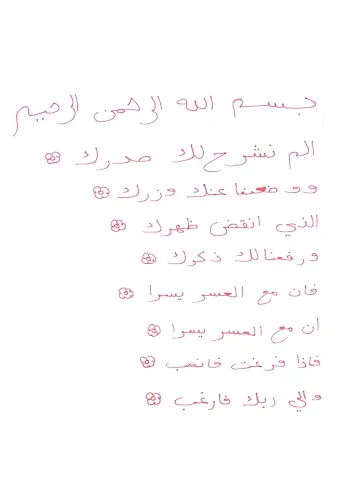 بسم الله الرحمن الرحيم
الم نشرح لك صدرك
ووضعنا عنك وزرك
الذي انقض ظهرك
ورفعنا لك ذكرك
فان مع العسر يسرا
ان مع العسر يسرا
فاذا فرغت فانصب
والي ربك فارغب